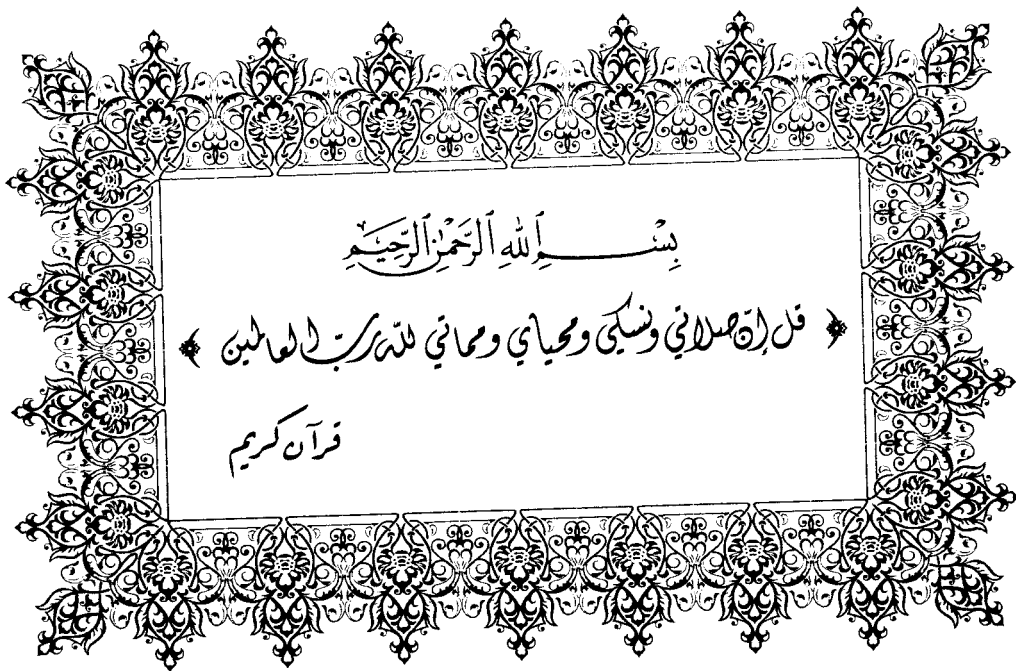 بِسْمِ ٱللهِ ٱلرَّحْمٰنِ ٱلرَّحِيمِ
﴿ قل إنّ صلاتي ونسكي ومحياي ومماتي للّه ربّ العالمين ﴾
قرآن كريم